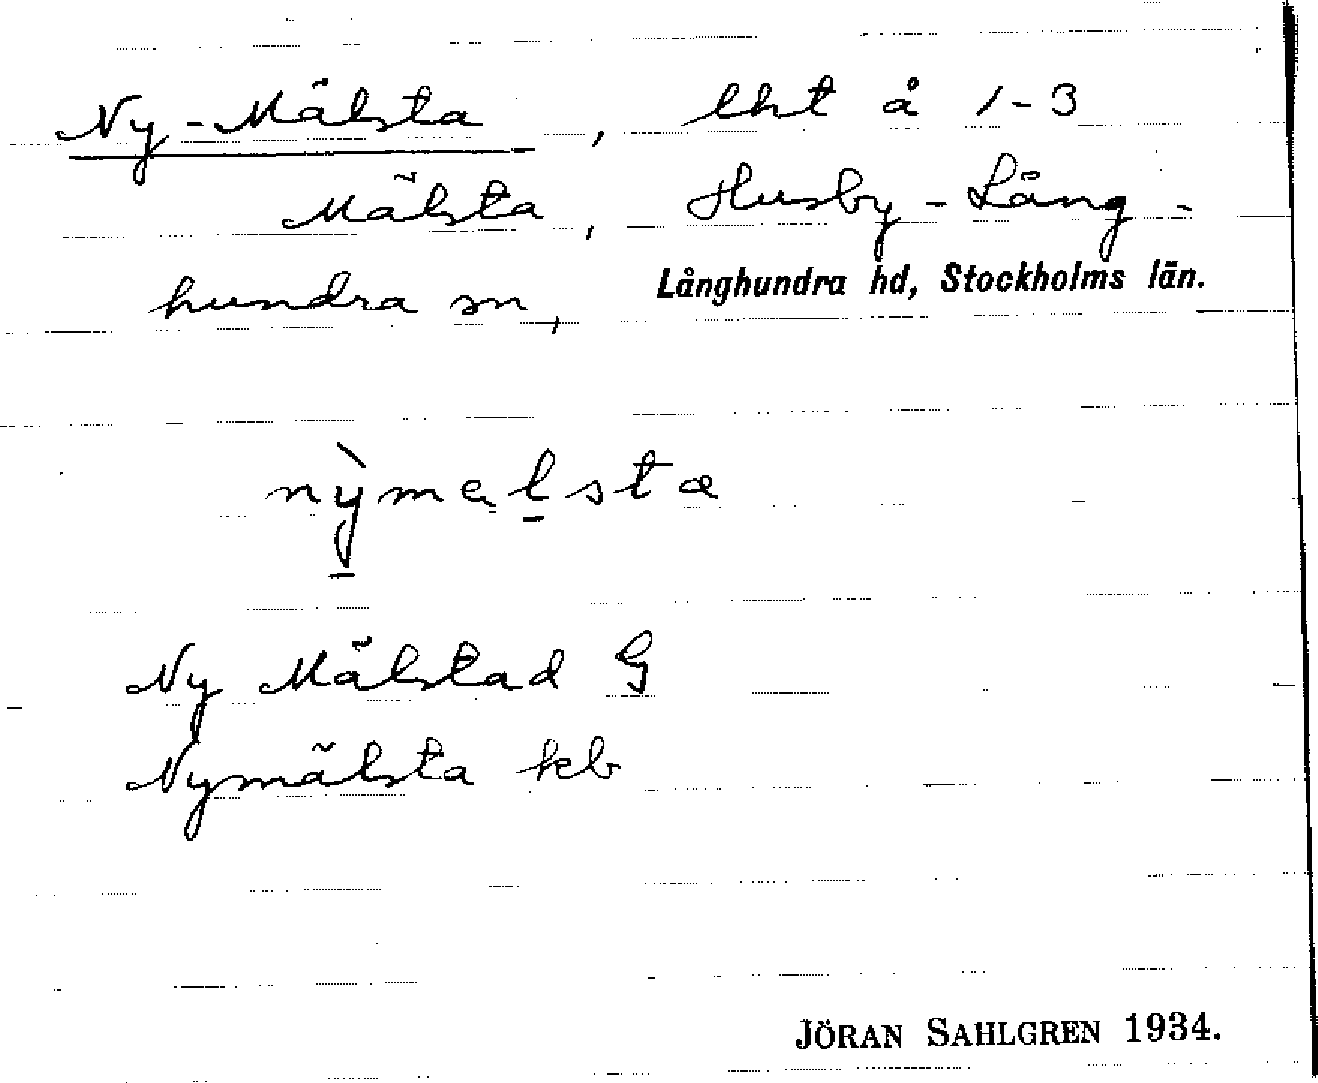 Ny-Mälsta, lht å 1-3
Mälsta, Husby-Lång-
hundra sn, Långhundra hd, Stockholms län.
nỳmalsta
Ny Mälstad G
Nymälsta kb
JÖRAN SAHLGREN 1934.